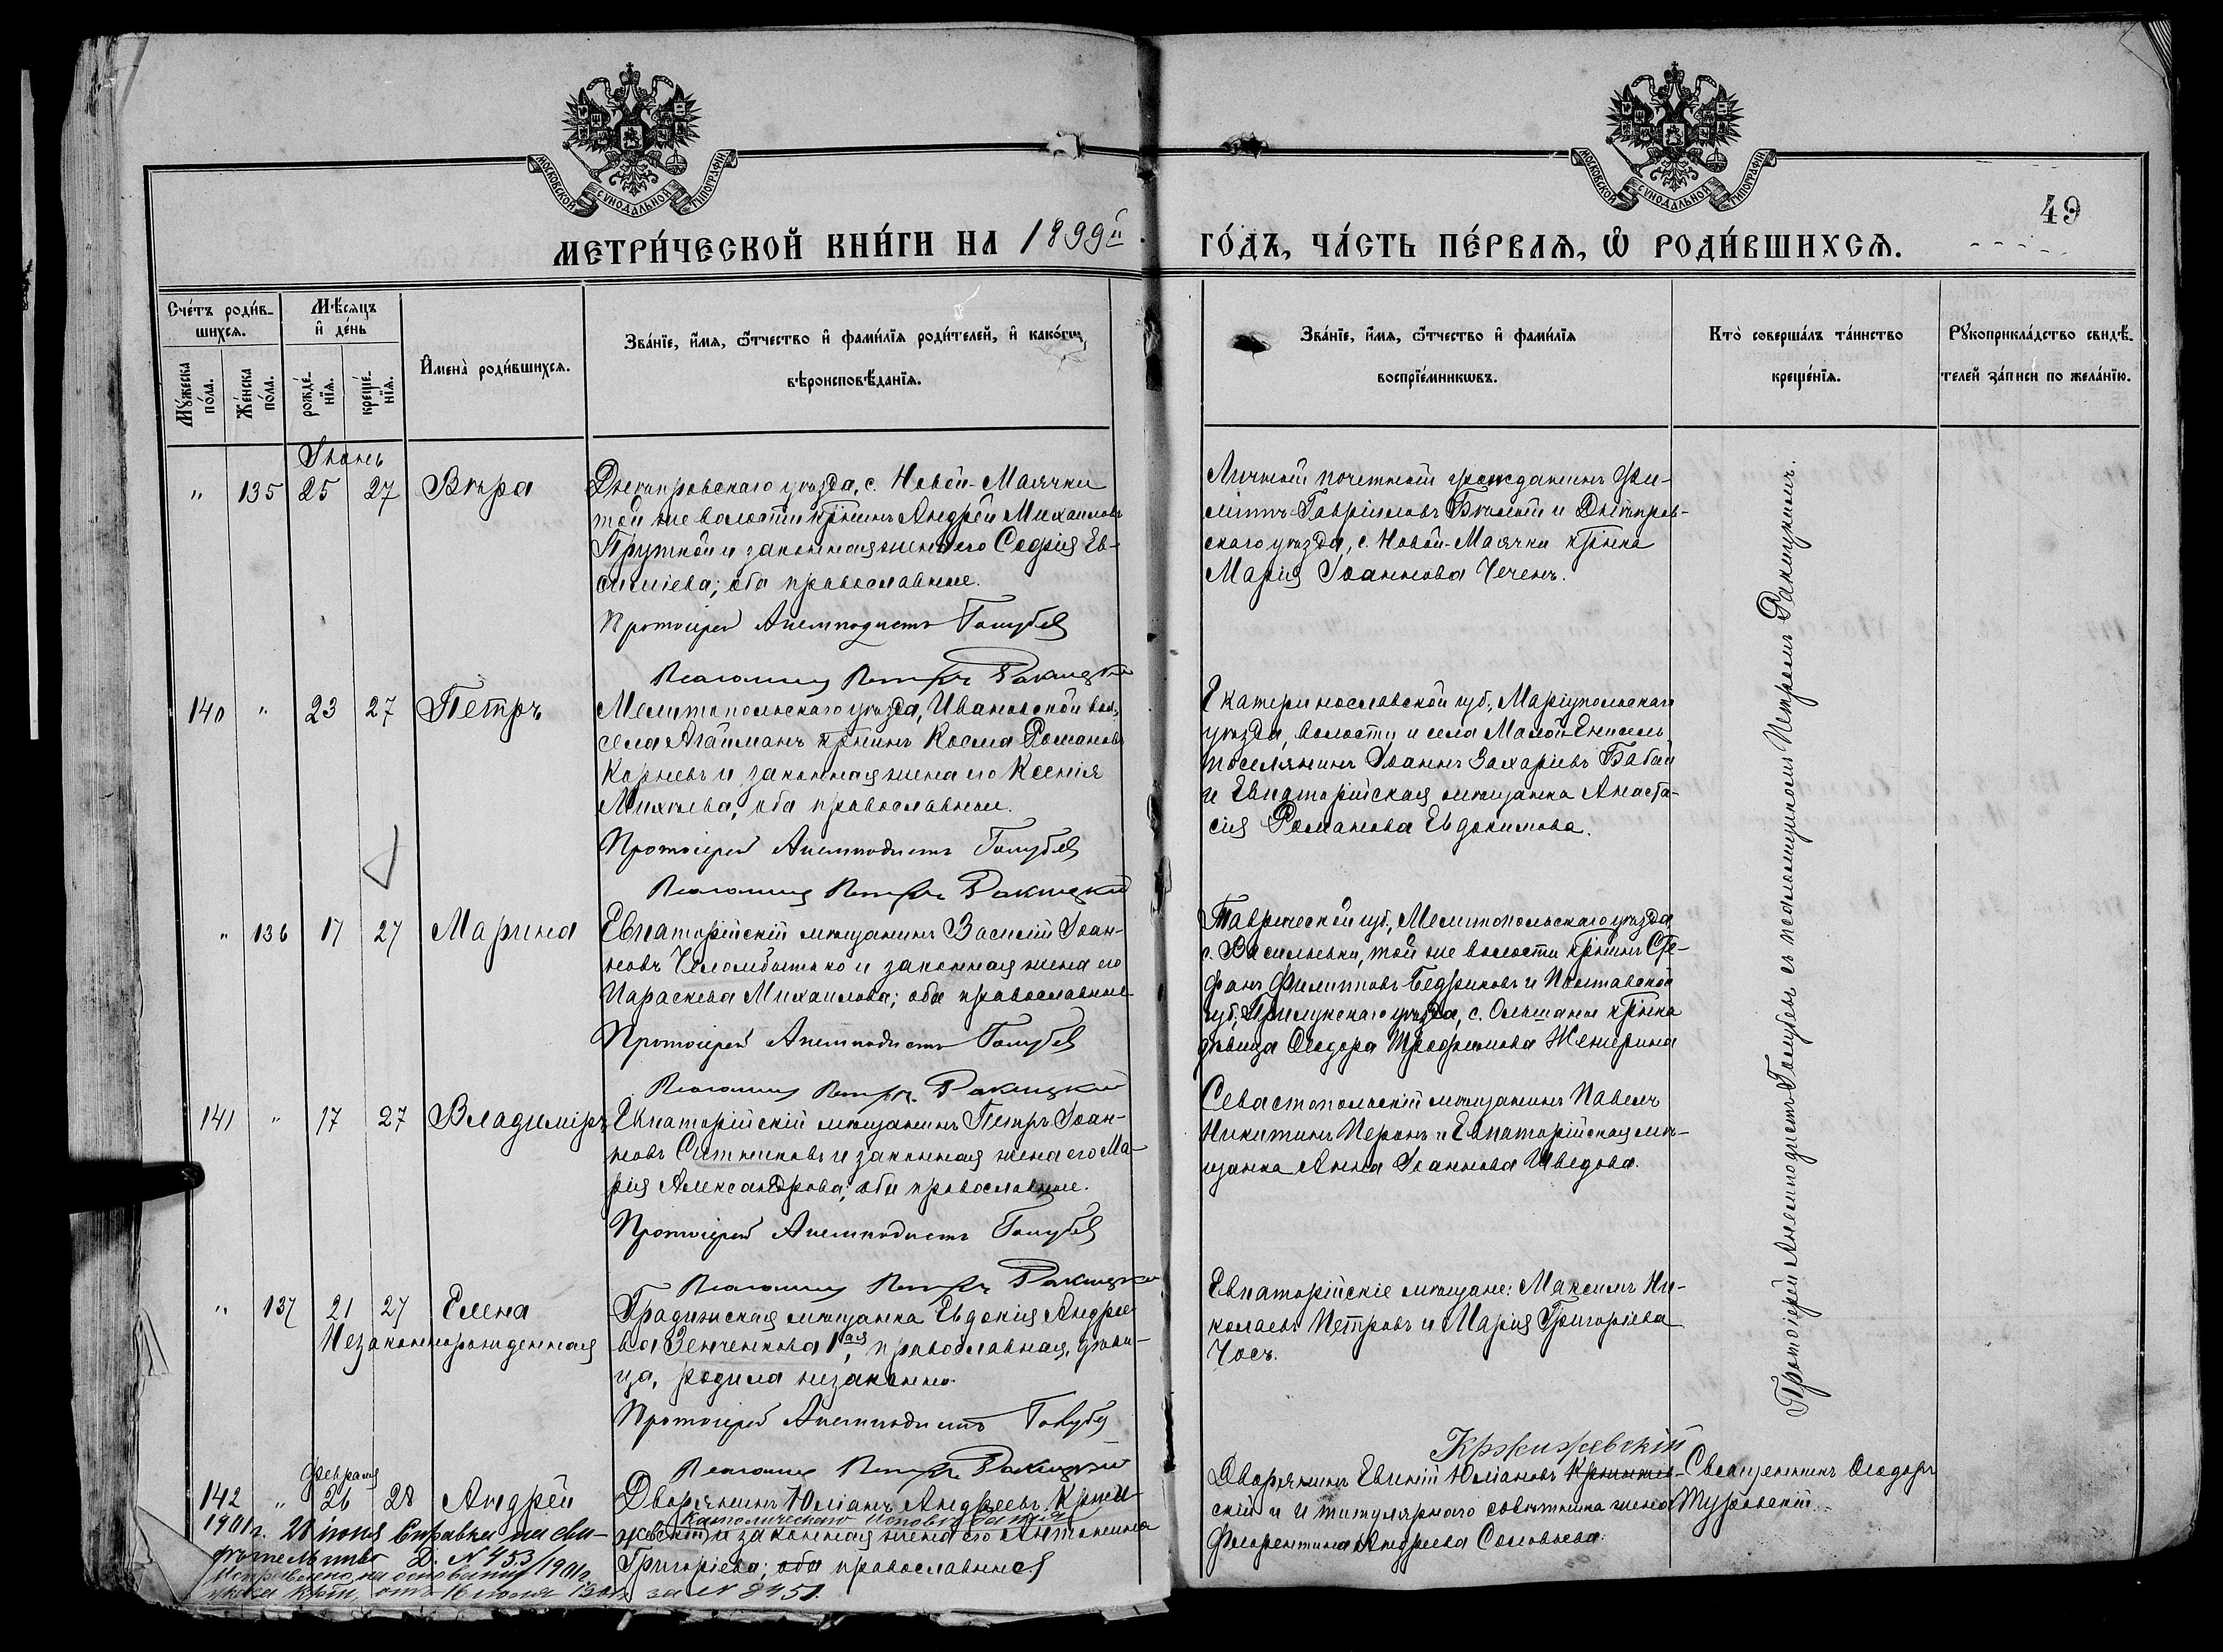 МОСКОВСКОЙ СѴНОДАЛЬНОЙ ТИПОГРАФІИ
МОСКОВСКОЙ СѴНОДАЛЬНОЙ ТИПОГРАФІИ
49
МЕТРИ́ЧЕСКОЙ КНИ́ГИ НА 1899й
ГО́ДЪ, ЧА́СТЬ ПЕ́РВАѦ, Ѡ҆ РОДИ́ВШИХСѦ.
Сче́тъ роди́в-
шихсѧ.
Мꙋ́жеска
по́ла.
Же́нска
по́ла.
Мѣ́сѧцъ
и҆ де́нь
рожде́-
нїѧ.
креще́-
нїѧ.
И҆мена̀ роди́вшихсѧ.
Зва́нїе, и҆́мѧ, ѻ҆́тчество и҆ фами́лїѧ роди́телей, и҆ како́гѡ
вѣроисповѣ́данїѧ.
Зва́нїе, и҆́мѧ, ѻ҆́тчество и҆ фами́лїѧ
воспрїе́мникѡвъ.
Кто̀ соверша́лъ та́инство
креще́нїѧ.
Рꙋкоприкла́дство свидѣ́-
телей за́писи по жела́нїю.
Іюнь
" 135 25 27 Вѣра
Днѣпровскаго уѣзда, с. Новой-Маячки
той же волости кр-нинъ Андрей Михаиловъ
и законная жена его Софія Ев-
оба православные.
Протоіерей Анемподистъ Голубев
Псаломщ Петръ Ракицкій
Личный почетный гражданинъ Фи-
липпъ Гавріиловъ и Днѣпров-
скаго уѣзда, с. Новой-Маячки кр-нка
Марія Іоаннова Чеченъ.
140 " 23 27 Петръ
Мелитопольскаго уѣзда, Ивановской вол.,
села Агайманъ кр-нинъ Косма Романовъ
Корневъ и законная жена его Ксенія
Михеева; оба православные.
Протоіерей Анемподистъ Голубев
Псаломщ Петръ Ракицкій
Екатеринославской губ., Маріупольскаго
уѣзда, волости и села Малой-Енисель
поселянинъ Іоаннъ Захаріевъ Бабаи
и Евпаторійская мѣщанка Анаста-
сія Романова Евдокимова.
" 136 17 27 Марина
Евпаторійскій мѣщанинъ Василій Іоан-
новъ Челомбитько и законная жена его
Параскева Михаилова; оба православные
Протоіерей Анемподистъ Голубев
Псаломщ Петръ Ракицкій
Таврической губ., Мелитопольскаго уѣзда,
с. Васильевки, той же волости кр-нинъ Сте-
фанъ Филипповъ Бедриковъ и Полтавской
губ., Прилукскаго уѣзда, с. Ольшаны кр-нка
дѣвица Ѳеодора Трофимова
141 " 17 27 Владиміръ
Евпаторійскій мѣщанинъ Петръ Іоан-
новъ Ситниковъ и законная жена его Ма-
рія Александрова; оба православные.
Протоіерей Анемподистъ Голубев
Псаломщ Петръ Ракицкій
Севастопольскій мѣщанинъ Павелъ
Никитинъ Перонъ и Евпаторійская мѣ-
щанка Анна Іоаннова Шведова.
" 137 21 27 Елена
Незаконнорожденная
Градижская мѣщанка Евдокія Андрее-
ва Зенченкова 1ая, православная, дѣви-
ца, родила незаконно.
Протоіерей Анемподистъ Голубев
Псаломщ Петръ Ракицкій
Евпаторійскіе мѣщане: Максимъ Ни-
колаевъ Петровъ и Марія Григоріева
Чосъ.
Протоіерей Анемподистъ Голубевъ съ псаломщикомъ Петромъ Ракицкимъ.
Февраля
142 " 26 28 Андрей
Дворянинъ Юліанъ Андреевъ Кржи-
католическаго исповѣданія
жевскій и законная жена его Антонина
Григоріева; оба православная
Кржижевскій
Дворянинъ Евгеній Юліановъ
скій и титулярнаго совѣтника жена
Флорентина Андреева Соловьева.
Священникъ Ѳеодоръ
1901 г. 20 іюня Справка на сви-
дѣтельство Д. № 453/1901 г.
Исправлено на основаніи
указа отъ 16 іюля 1901 г. за № 8451.